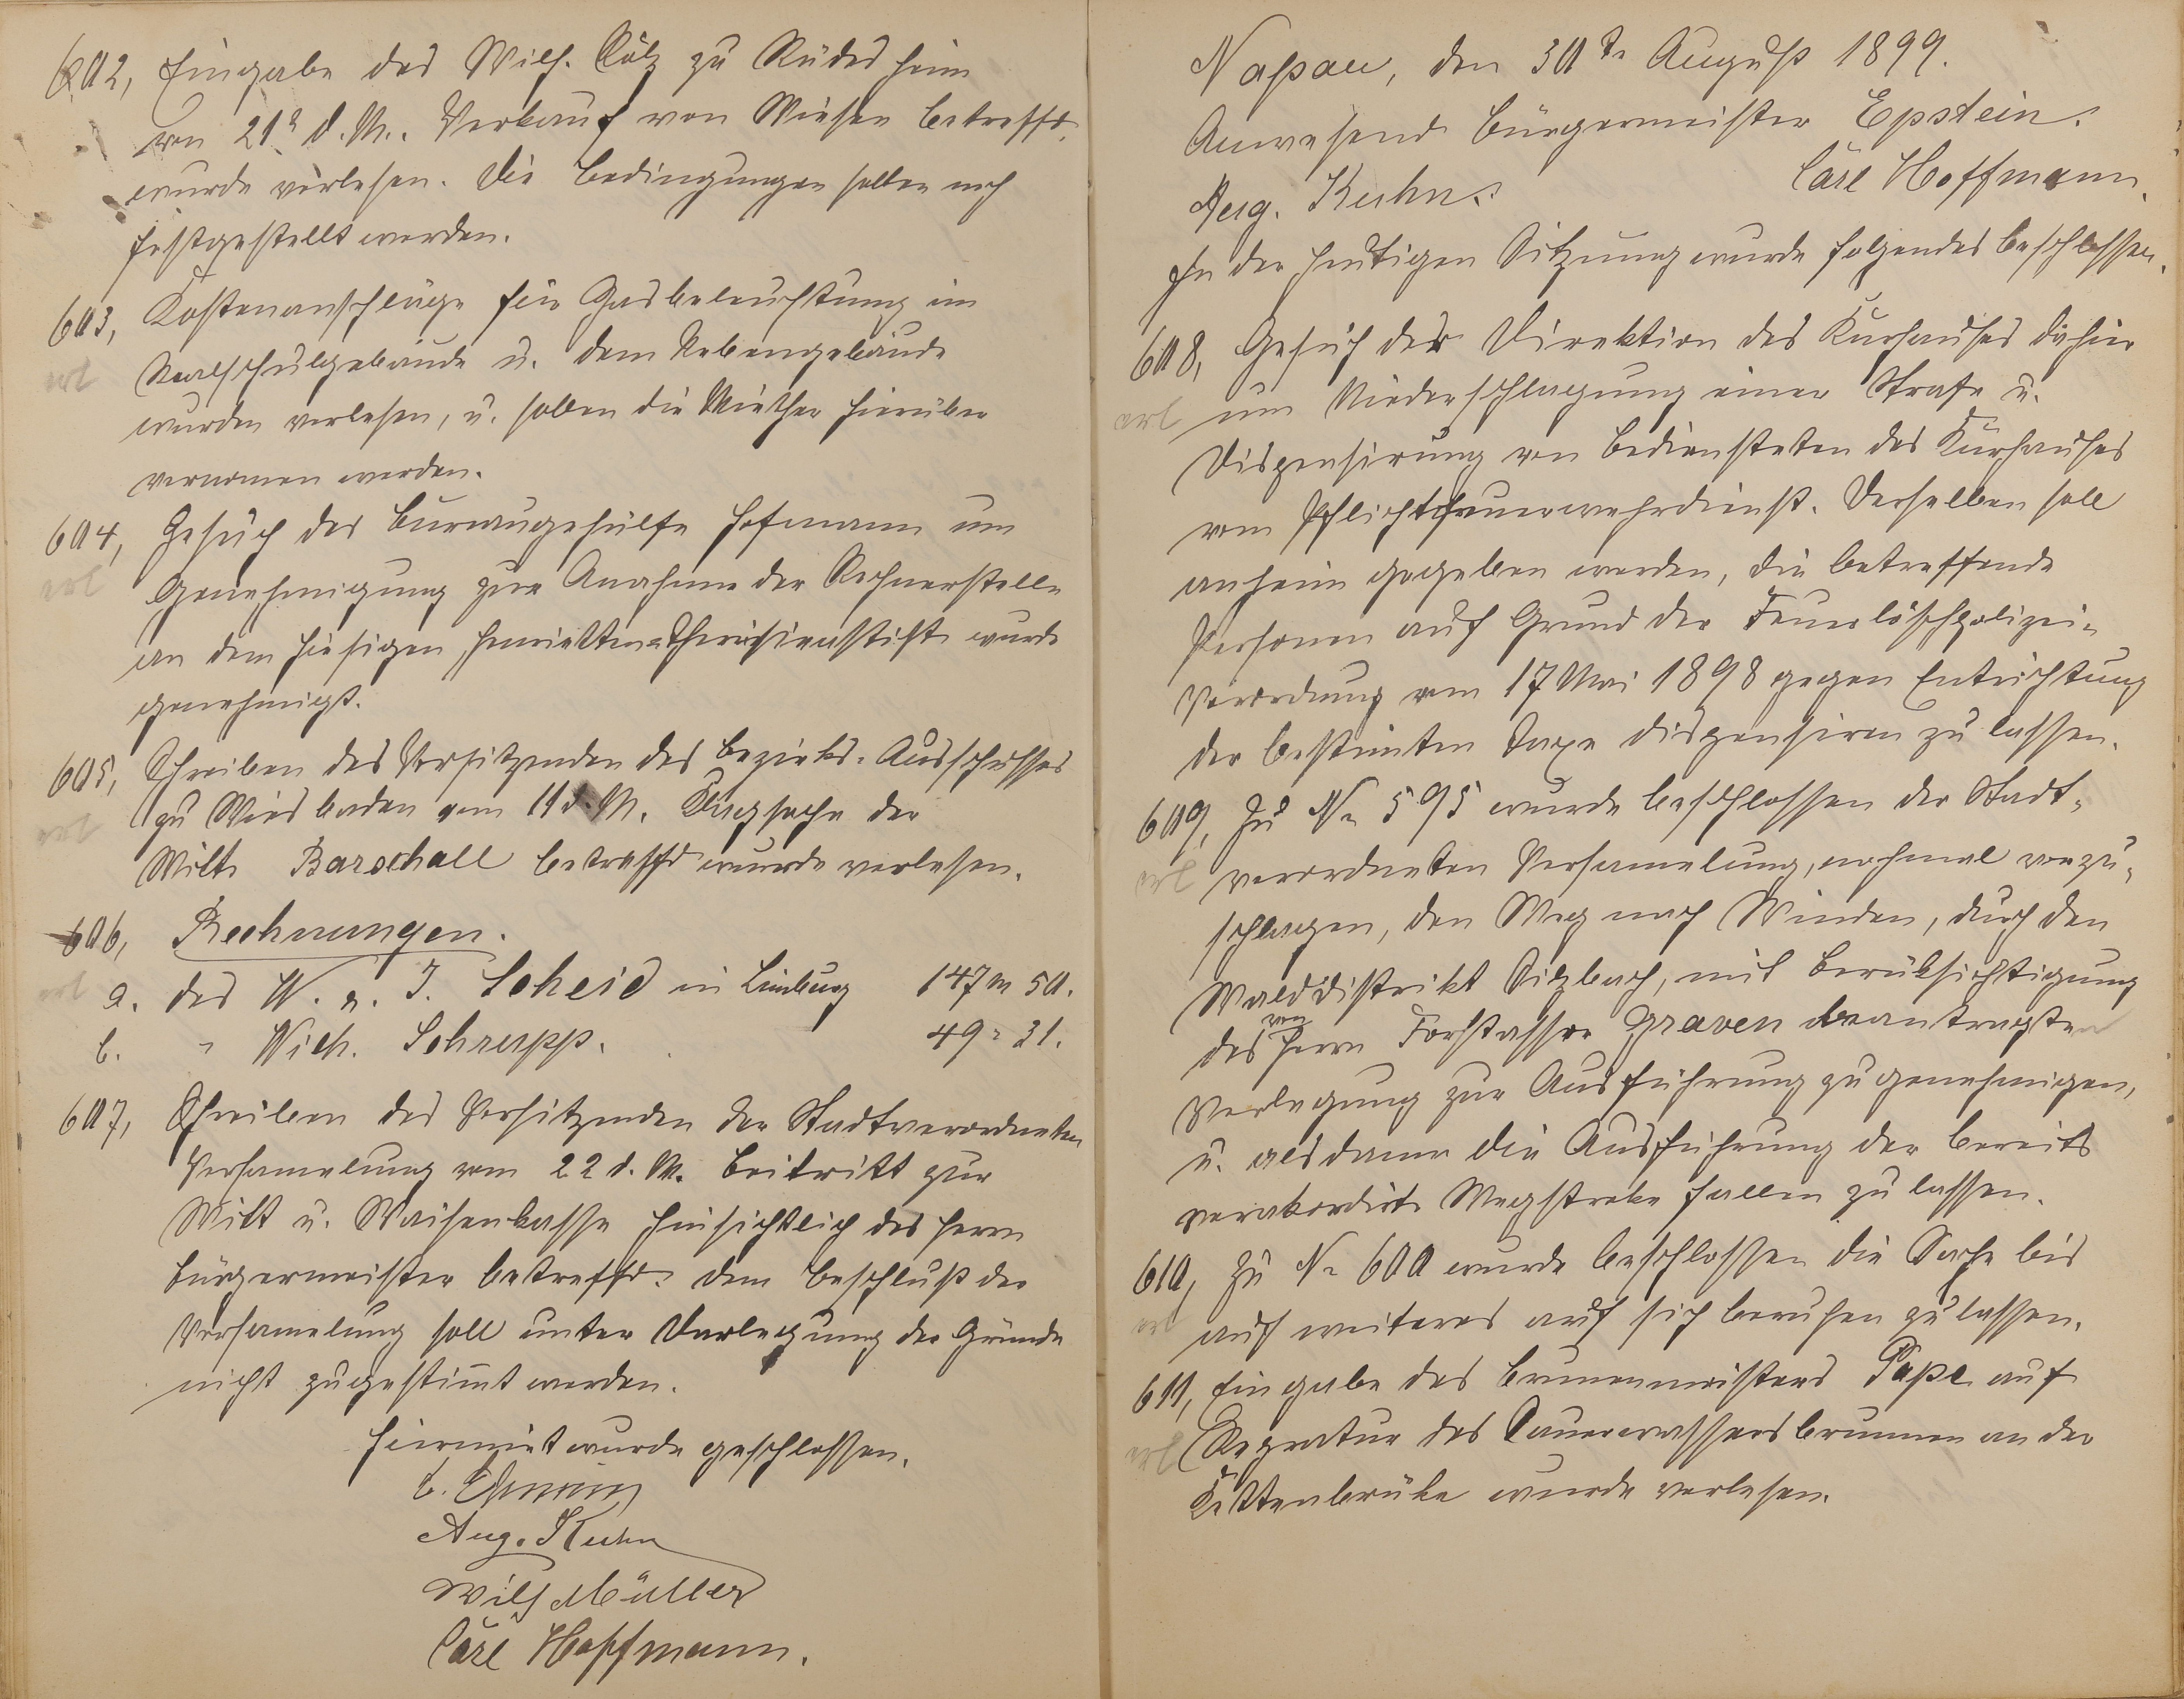 602, Eingabe des Wilh. Külz zu Rüdesheim
vom 21t d. M. Verkauf von Wiesen betreffd.
wurde verlesen. Die Bedingungen sollen noch
festgestellt werden.
603, Kostenanschläge für Gasbeleuchtung im
erl Realschulgebäude u. dem Nebengebäude
wurden verlesen, u. sollen die Miether hierüber
vernomen werden.
604, Gesuch des Bureaugehülfe Hofmann um
erl Genehmigung zur Anahme der Rechnerstelle
an dem hiesigen Henrietten-Theresienstift wurde
genehmigt.
605, Schreiben des Vorsitzenden des Bezirks-Ausschusses
erl zu Wiesbaden vom 11 d. M. Klagsache der
Witt. Barschall betreffd wurde verlesen.
606, Rechnungen.
erl a. des W. u. J. Scheid in Limburg 147 M 50.
b. " Wilh. Schrupp. 49 " 31.
607, Schreiben des Vorsitzenden der Stadtverordneten
Versamelung vom 22 d. M. Beitritt zur
Witt u. Waisenkasse hinsichtlich des Herrn
Bürgermeister betreffd. dem Beschluß der
Versamelung soll unter Darlegung der Gründe
nicht zugestimt werden.
Hiermit wurde geschlossen.
Aug. Kuhn
Wilh Müller
Carl Hoffmann.
Naßau, den 30te August 1899.
Anwesend Bürgermeister Epstein.
Aug. Kuhn. Carl Hoffmann.
In der heutigen Sitzung wurde folgendes beschlossen.
608, Gesuch der Direktion des Kurhauses dahier
erl um Niederschlagung einer Strafe u.
Dispensirung von Bediensteten des Kurhauses
vom Pflichtfeuerwehrdienst. Derselben soll
anheim gegeben werden, die betreffende
Personen auf Grund der Feuerlöschpolizei-
Verordnung vom 17 Mai 1898 gegen Entrichtung
der bestimten Taxe dispensiren zu lassen.
609, Zu No 595 wurde beschlossen der Stadt-
erl verordneten Versamelung, nochmal vorzu-
schlagen, den Weg nach Winden, durch den
Walddistrikt Silzbach, mit Berüksichtigung
des von Herrn Forstassor Graven beantragten
Verlegung zur Ausführung zu genehmigen,
u. alsdann die Ausführung der bereits
verakordirte Wegstreke fallen zu lassen.
610, Zu No 600 wurde beschlossen die Sache bis
erl auf weiteres auf sich beruhen zu lassen.
611, Eingabe des Brunnenmeisters Pape auf
erl Repratur des Sauerwassersbrunnen an der
Kettenbrüke wurde verlesen.